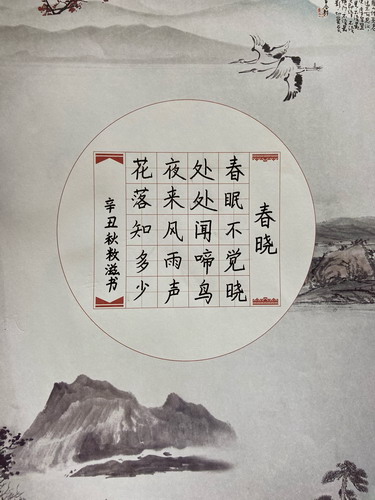 春晓
春眠不觉晓
处处闻啼鸟
夜来风雨声
花落知多少
辛丑秋敉滋书